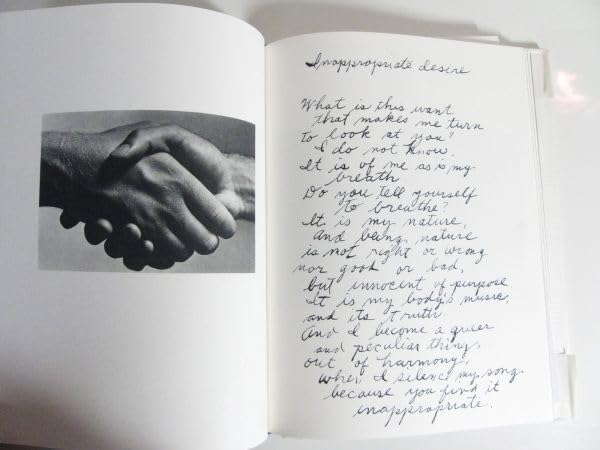 Inappropriate desire
What is this want
that makes me turn
to look at you?
I do not know.
It is of me as is my
breath
Do you tell yourself
to breathe?
It is my nature,
and being nature
is not right or wrong
nor good or bad,
but innocent of purpose
It is my body's music,
and its truth
And I become a queer
and peculiar thing,
out of harmony,
when I silence my song
because you find it
inappropriate.